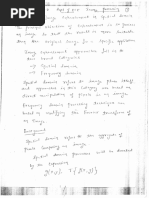 The principal objective of enhancement is to process
an image so that the result is more suitable
than the original image for a specific application.
Image enhancement approaches fall in to
two broad categories
→ Spatial domain
→ frequency domain
Spatial domain refers to image plane itself
and approaches in this category are based on
direct manipulation of pixels in an image
Frequency domain processing techniques are
based on modifying the Fourier transform of
an image.
Background
Spatial domain refers to the aggregate of
pixels composing an image.
Spatial domain processes will be denoted
by the expression
g(x,y) = T[f(x,y)]